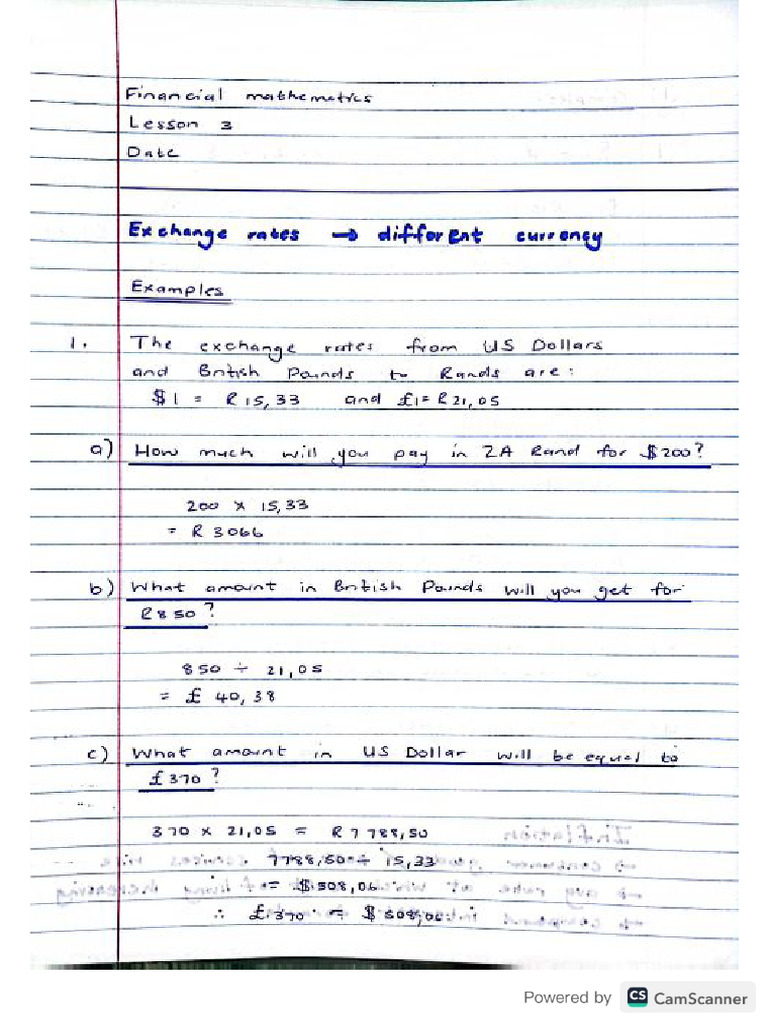 Financial mathematics
Lesson 3
Date
Exchange rates → different currency
Examples
1. The exchange rates from US Dollars
and British Pounds to Rands are:
$1 = R15,33 and £1 = R21,05
a) How much will you pay in ZA Rand for $200?
200 × 15,33
= R 3066
b) What amount in British Pounds will you get for
R850?
850 ÷ 21,05
= £ 40,38
c) What amount in US Dollar will be equal to
£370?
370 × 21,05 = R7788,50
7788,50 ÷ 15,33
= $508,06
∴ £370 = $508,06
Powered by CS CamScanner